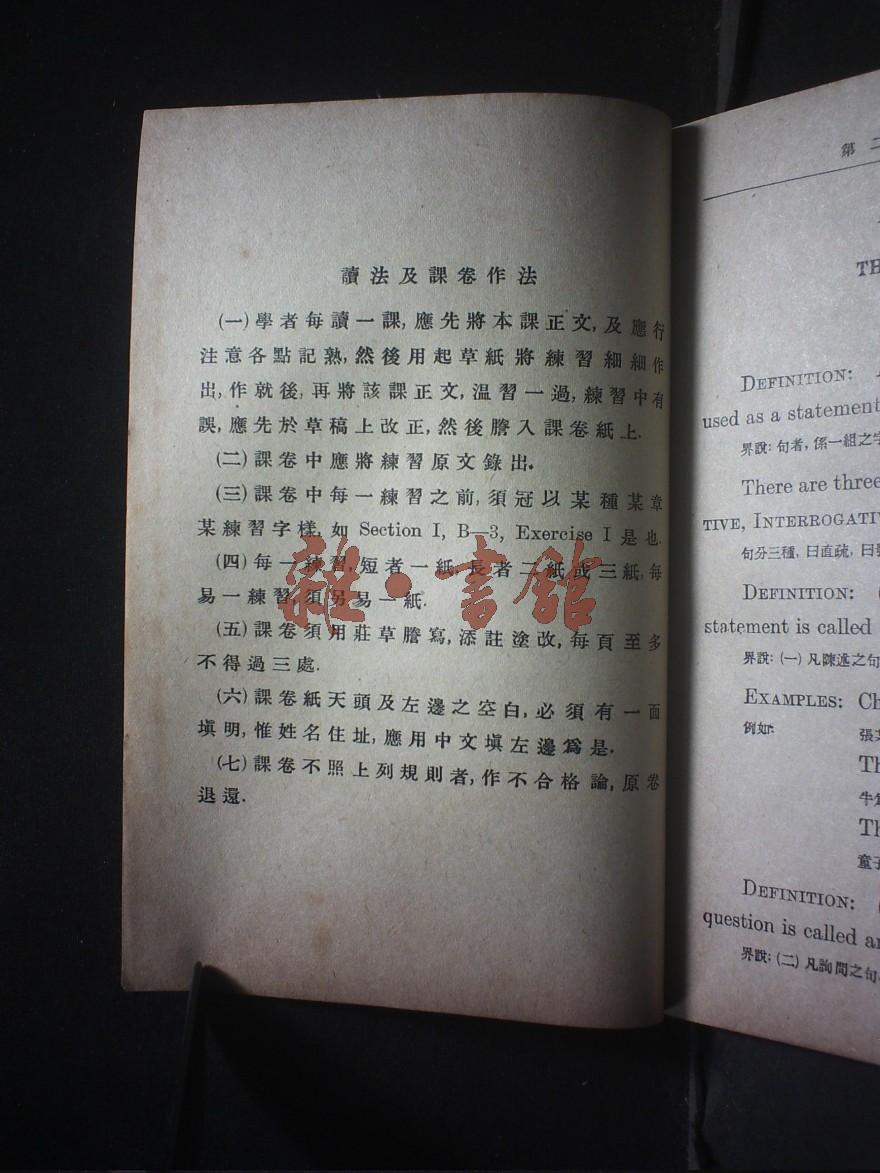 讀法及課卷作法
(一)學者每讀一課,應先將本課正文,及應行
注意各點記熟,然後用起草紙將練習細細作
出,作就後,再將該課正文,温習一過,練習中有
誤,應先於草稿上改正,然後謄入課卷紙上.
(二)課卷中應將練習原文錄出.
(三)課卷中每一練習之前,須冠以某種某章
某練習字樣,如 Section I, B—3, Exercise I 是也.
(四)每一練習,短者一紙,長者二紙或三紙,每
易一練習,須另易一紙.
(五)課卷須用莊草謄寫,添註塗改,每頁至多
不得過三處.
(六)課卷紙天頭及左邊之空白,必須有一面
塡明,惟姓名住址,應用中文塡左邊爲是.
(七)課卷不照上列規則者,作不合格論,原卷
退還.
雜·書館
第二
TH
DEFINITION:
used as a statement
界說:句者,係一組之字
There are three
TIVE, INTERROGATIV
句分三種,曰直疏,曰
DEFINITION: (
statement is called
界說:(一)凡陳述之句
EXAMPLES: Ch
例如:
張
Th
牛
Th
童子
DEFINITION: (
question is called an
界說:(二)凡詢問之句